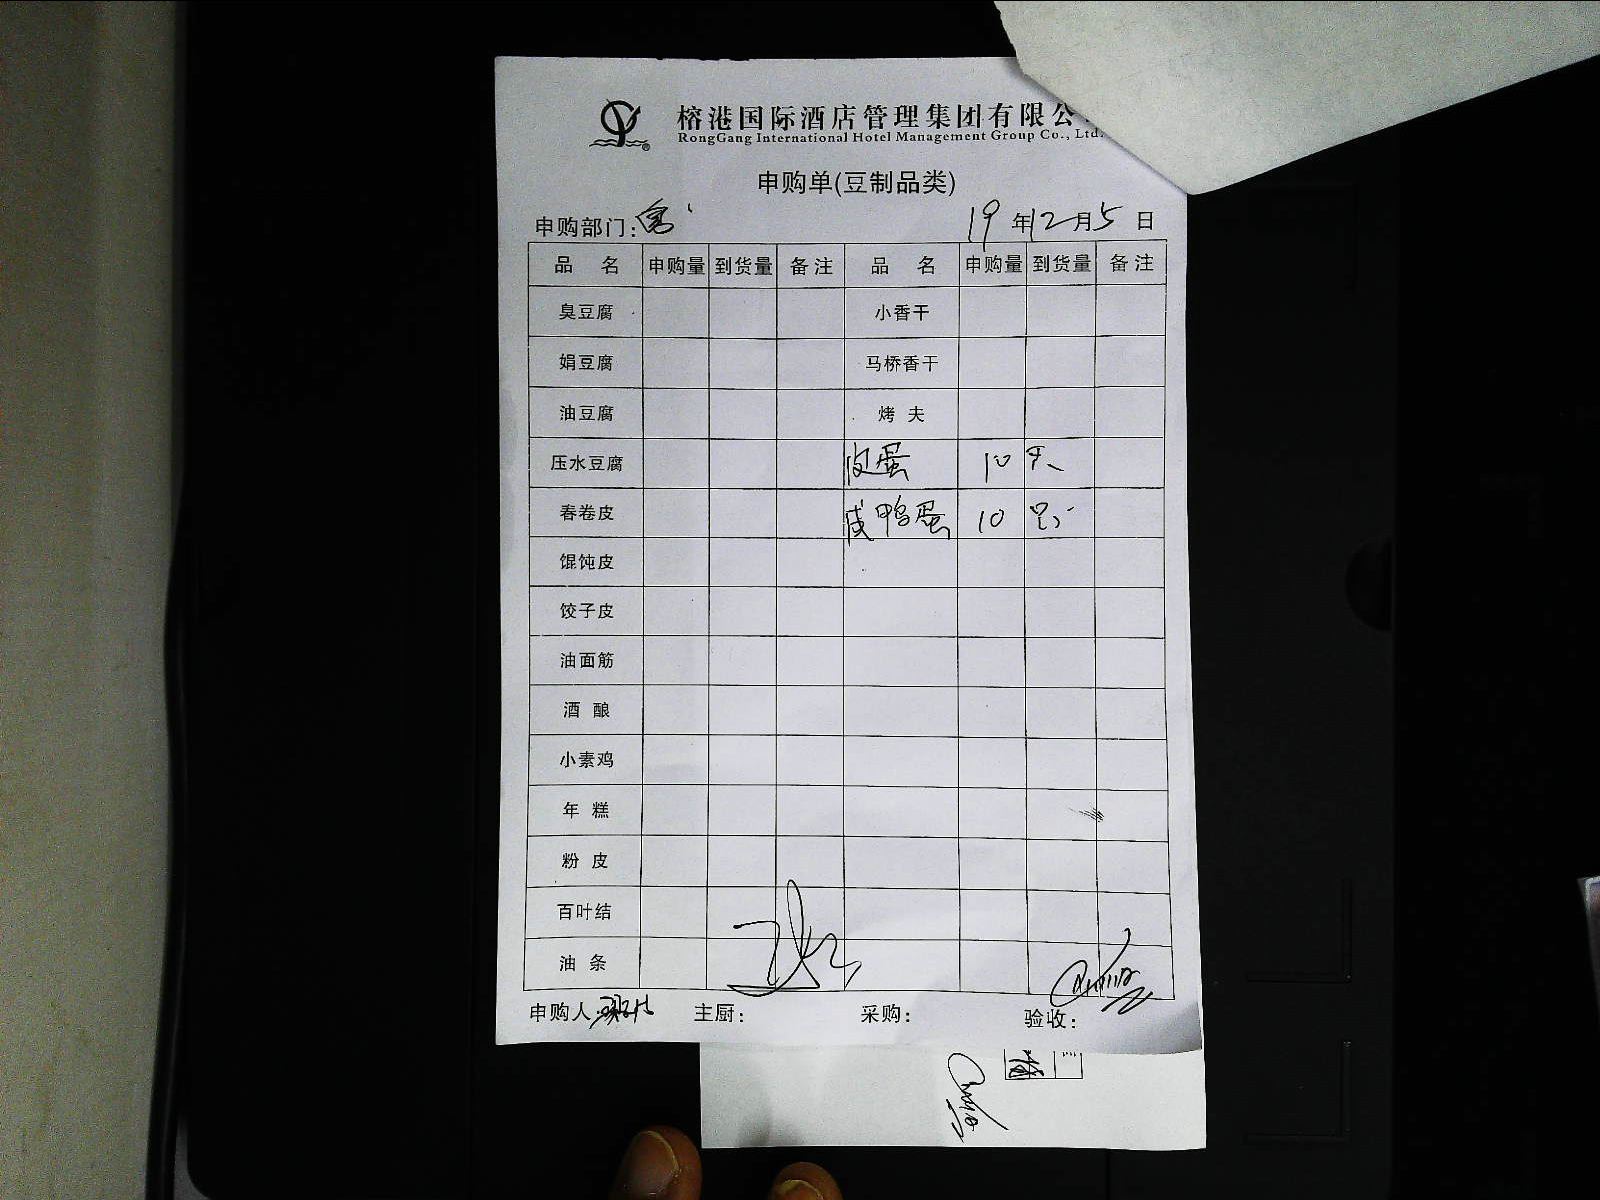 榕港国际酒店管理集团有限公
RongGang International Hotel Management Group Co., Ltd.
申购单(豆制品类)
申购部门: 19年12月5日
品 名 申购量 到货量 备注 品 名 申购量 到货量 备注
臭豆腐 小香干
娟豆腐 马桥香干
油豆腐 烤 夫
压水豆腐 皮蛋 10
春卷皮 咸鸭蛋 10 只
馄饨皮
饺子皮
油面筋
酒 酿
小素鸡
年 糕
粉 皮
百叶结
油 条
申购人: 主厨: 采购: 验收: